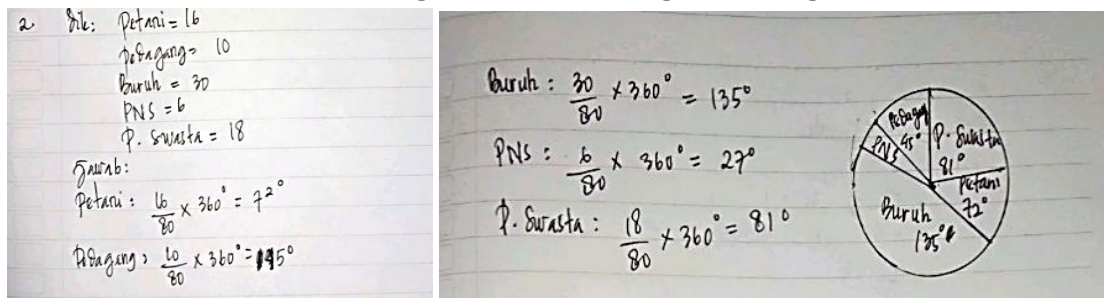 2. Dik: Petani = 16
Pedagang = 10
Buruh = 30
PNS = 6
P. Swasta = 18
Jawab:
Petani : 16/80 × 360° = 72°
Pedagang : 10/80 × 360° = 45°
Buruh : 30/80 × 360° = 135°
PNS : 6/80 × 360° = 27°
P. Swasta : 18/80 × 360° = 81°
Pedagang
45°
P. Swasta
81°
PNS
Petani
72°
Buruh
135°